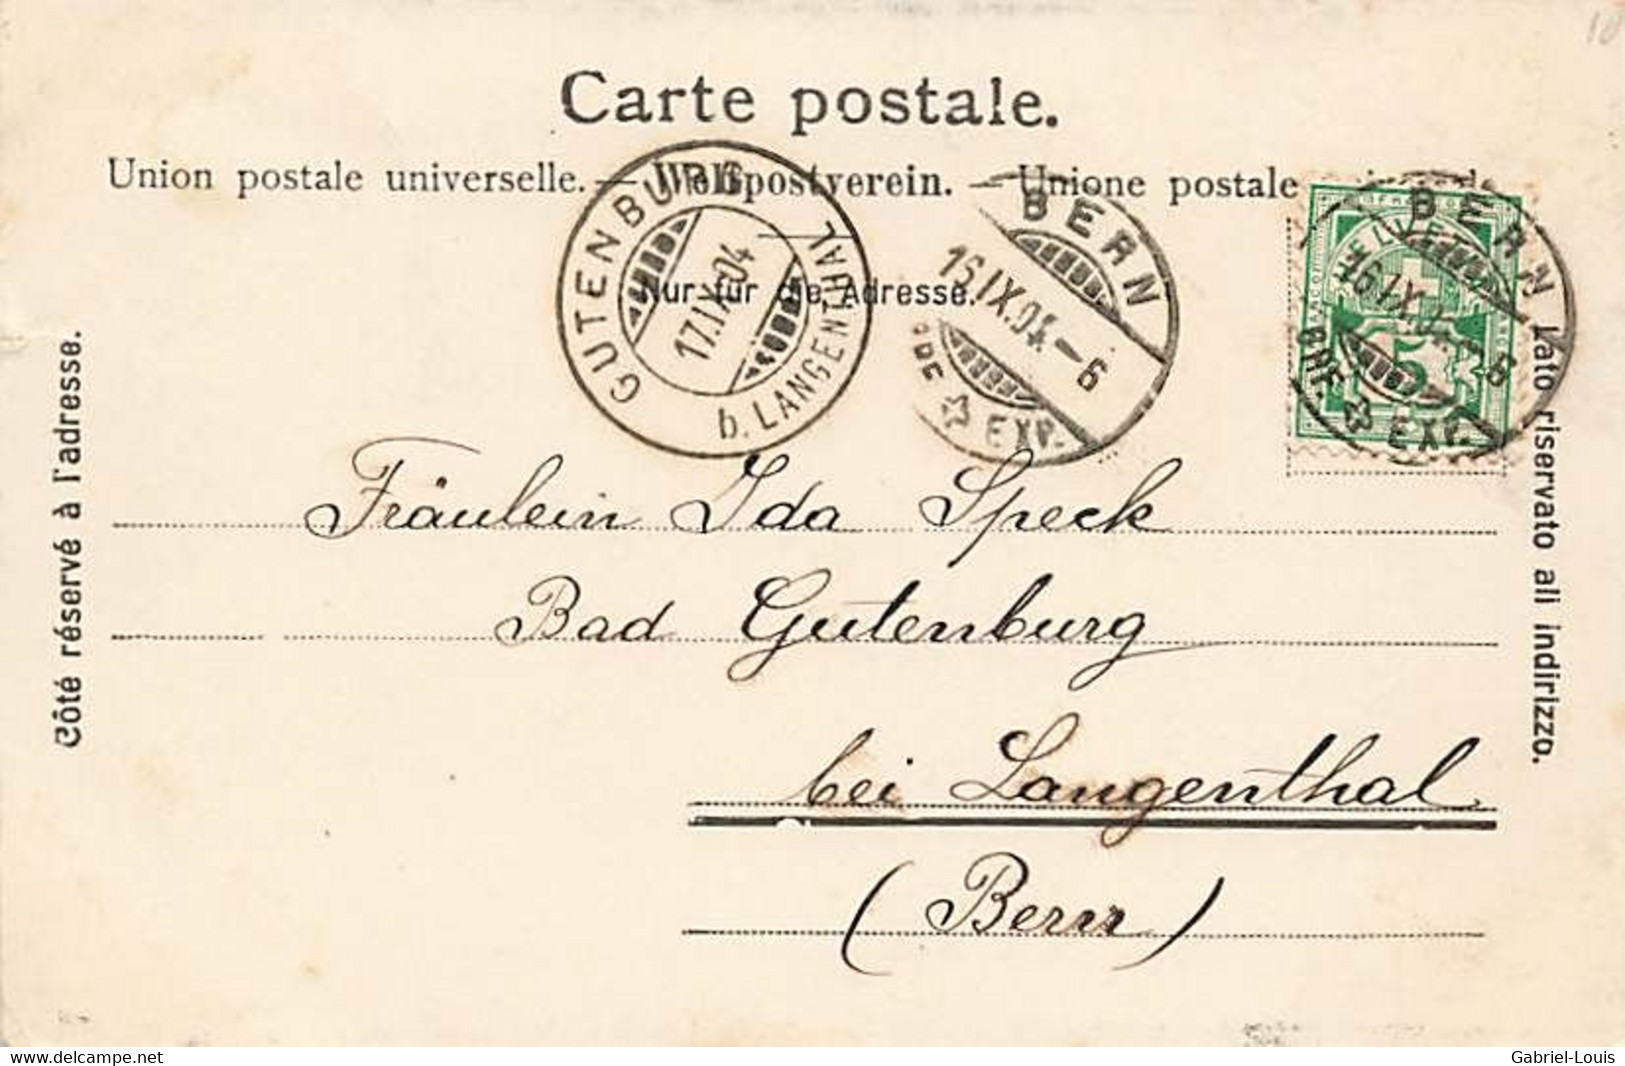 10
Carte postale.
Union postale universelle. — Weltpostverein. — Unione postale
Nur für die Adresse.
Côté réservé à l'adresse.
Lato riservato all indirizzo.
GUTENBURG
17.IX.04
b. LANGENTHAL
BERN
16.IX.04.–6
EXP.
BERN
16.IX.04.–6
BRF. EXP.
HELVETIA
5
Fräulein Ida Speck
Bad Gutenburg
bei Langenthal
(Bern)
delcampe.net
Gabriel-Louis